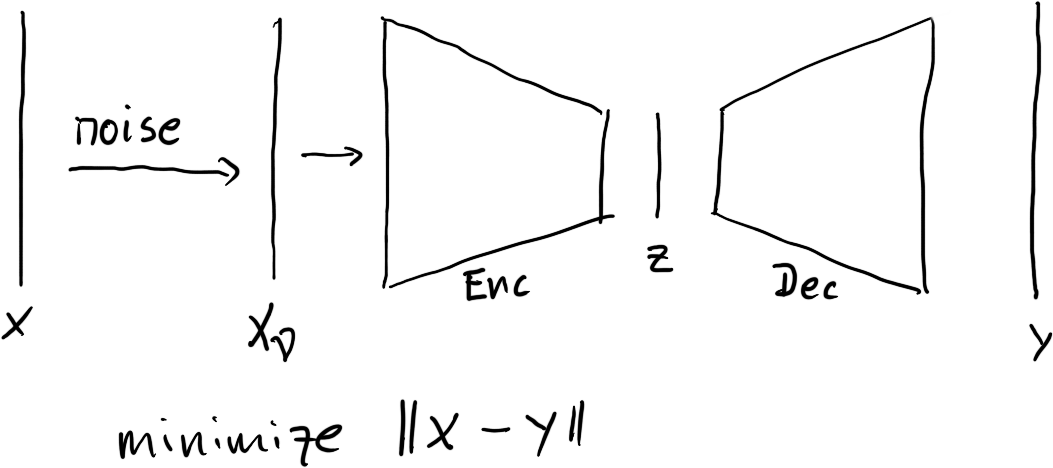 noise
Enc
z
Dec
x
x_ν
y
minimize ‖x − y‖